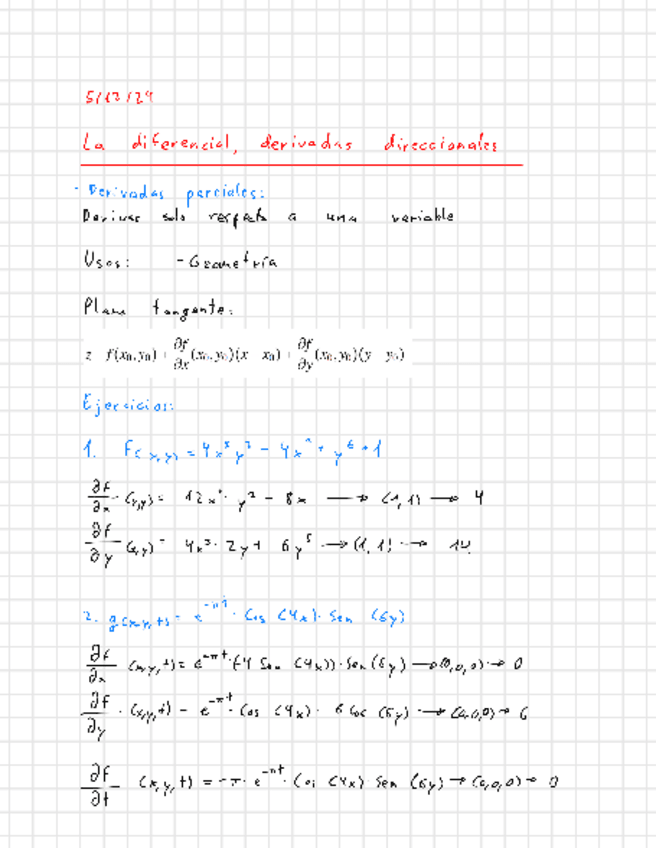 5/12/24
La diferencial, derivadas direccionales
- Derivadas parciales:
Derivar solo respecto a una variable
Usos: - Geometría
Plano tangente:
z = f(x₀, y₀) + ∂f/∂x (x₀, y₀)(x - x₀) + ∂f/∂y (x₀, y₀)(y - y₀)
Ejercicios:
1. F(x,y) = 4x³y² - 4x² + y⁶ + 1
∂f/∂x (x,y) = 12x² · y² - 8x → (1,1) → 4
∂f/∂y (x,y) = 4x³ · 2y + 6y⁵ → (1,1) → 14
2. g(x,y,t) = e^(-πt) · Cos (4x) · Sen (6y)
∂f/∂x (x,y,t) = e^(-πt) · (-4 Sen (4x)) · Sen (6y) → (0,0,0) → 0
∂f/∂y · (x,y,t) = e^(-πt) · Cos (4x) · 6 Cos (6y) → (0,0,0) → 6
∂f/∂t (x,y,t) = -π · e^(-πt) · Cos (4x) · Sen (6y) → (0,0,0) → 0